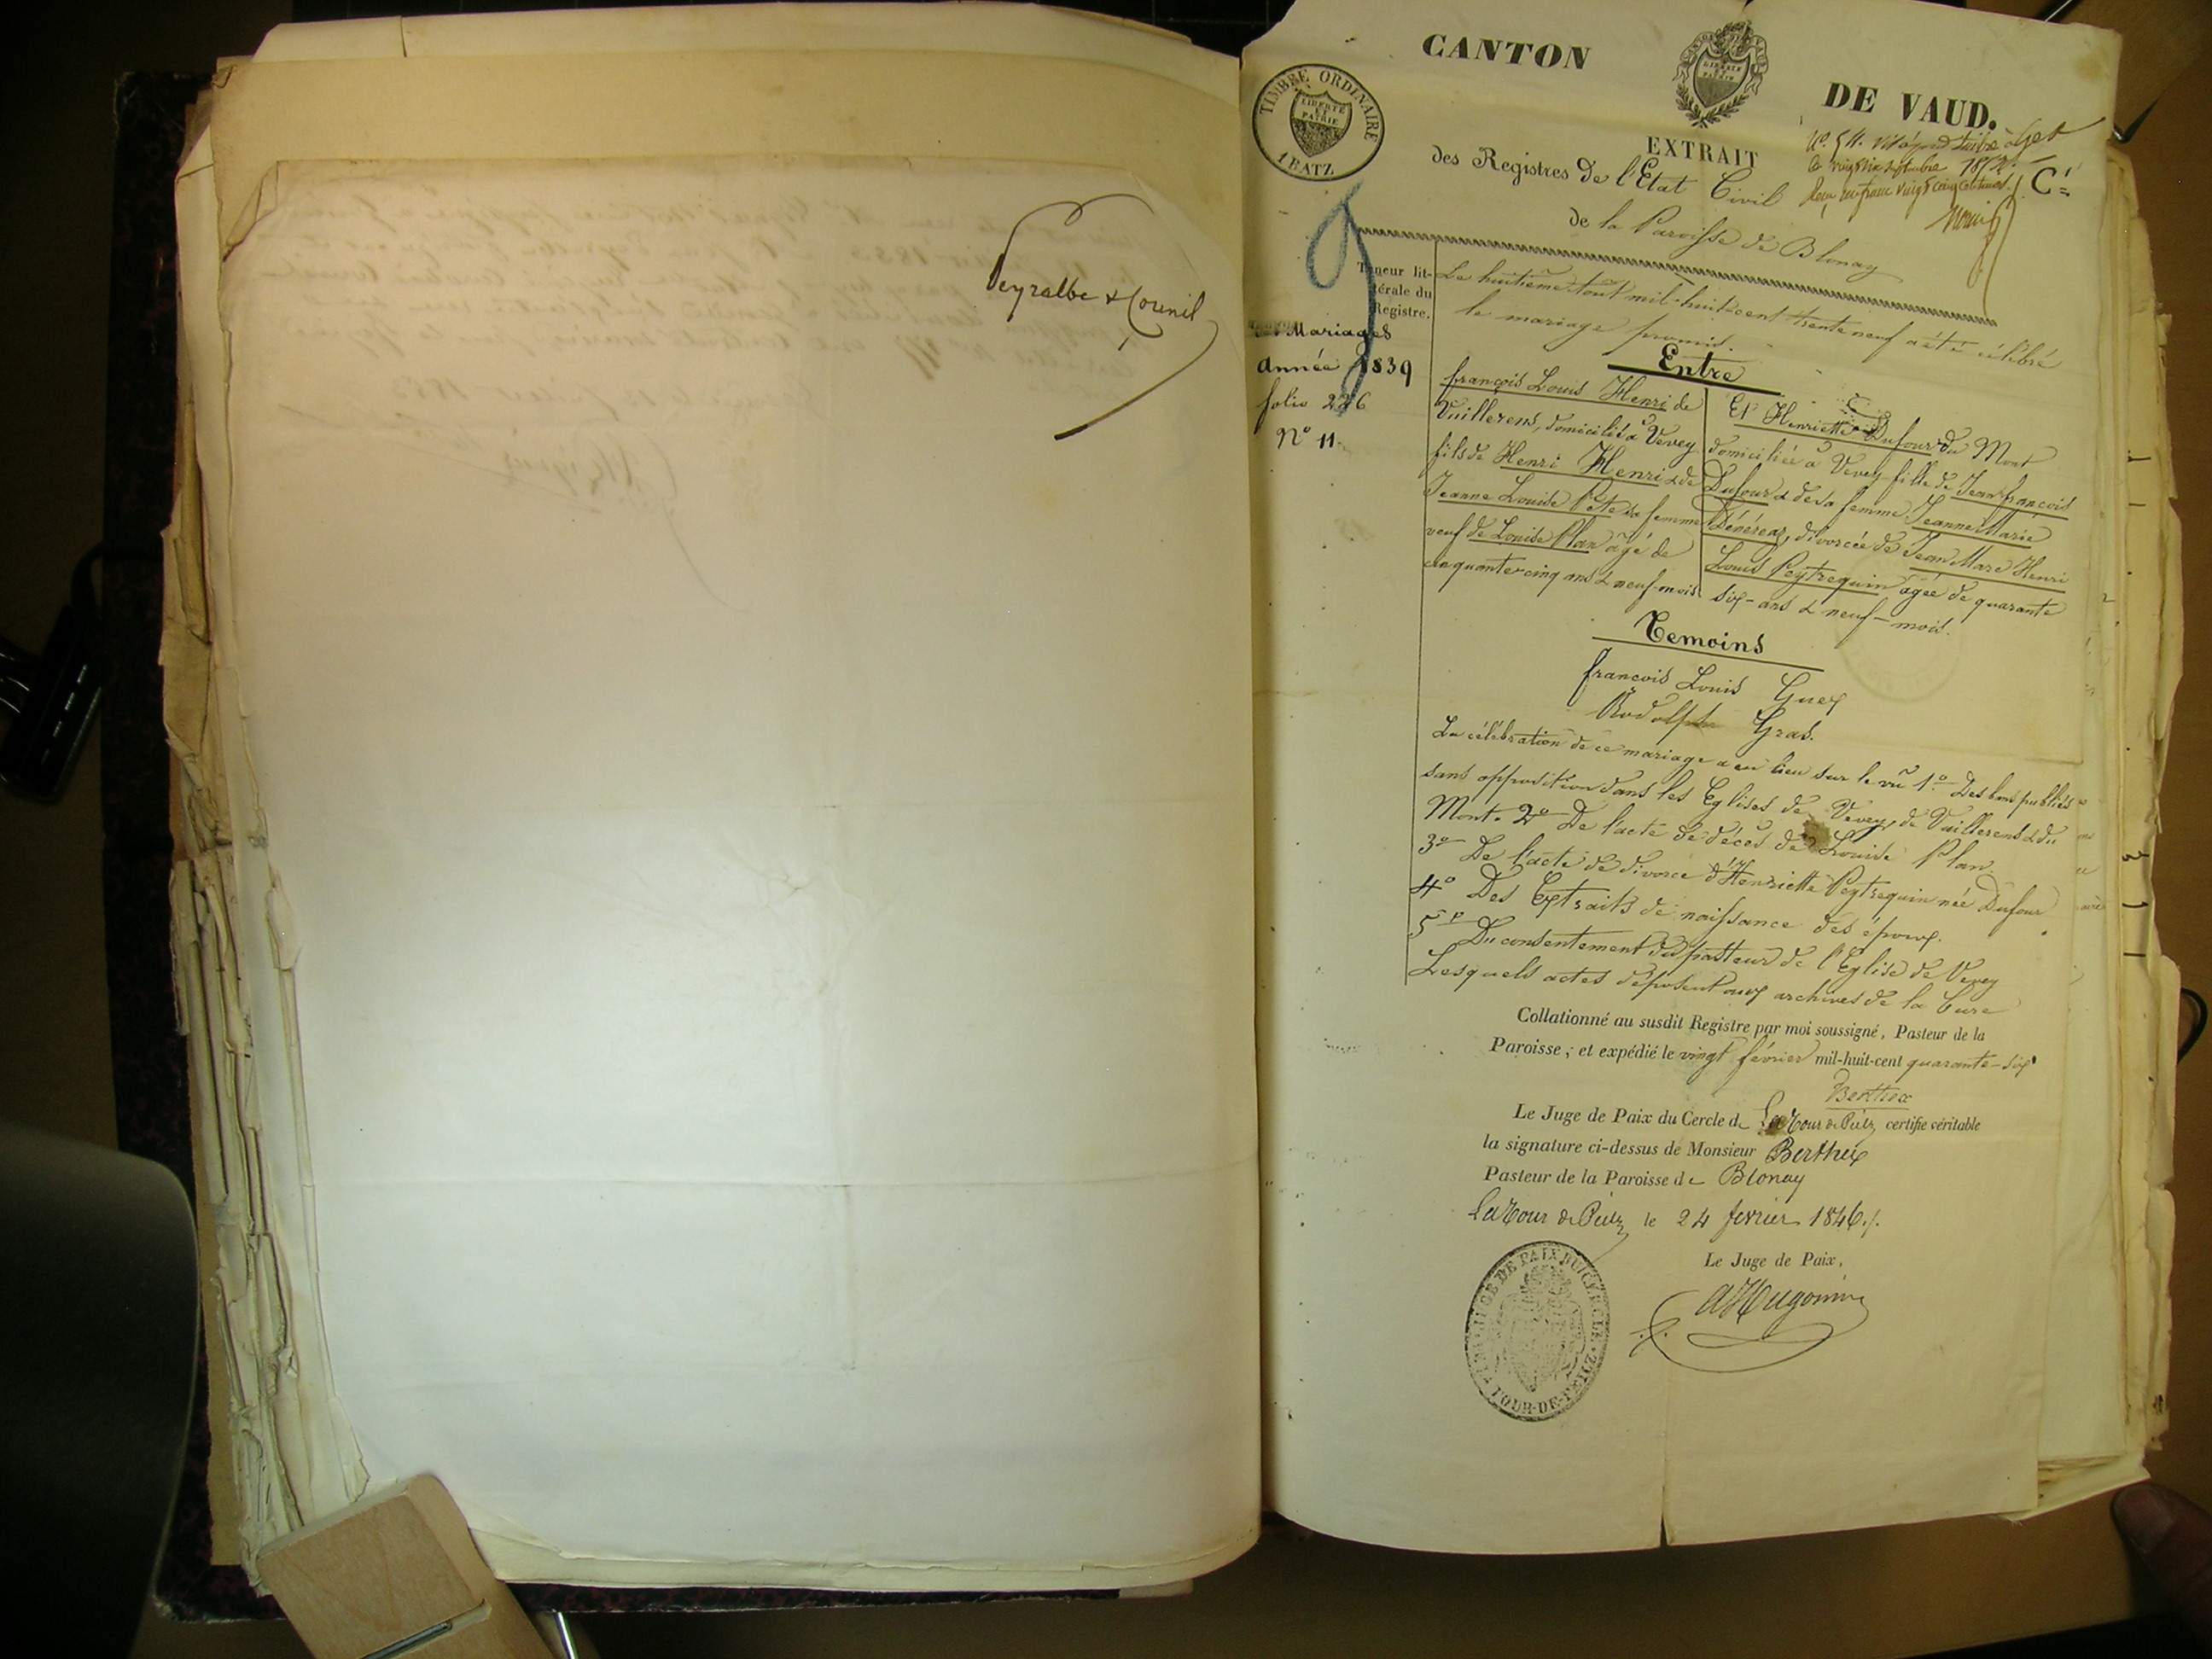 Veyralbe & Cournil
CANTON DE VAUD.
TIMBRE ORDINAIRE
LIBERTÉ
ET
PATRIE
1 BATZ
LIBERTÉ
ET
PATRIE
EXTRAIT
des Registres de l'Etat Civil
de la Paroisse de Blonay
C.
Teneur lit-
térale du
Registre.
Mariages
année 1839
folio 226
N° 11.
Le huitième août mil-huit-cent trente neuf a été célébré
le mariage promis.
Entre
françois Louis Henri de
Vuillerens, domicilié à Vevey
fils de Henri Henri & de
Jeanne Louise Pete sa femme
veuf de Louise Plan âgé de
cinquante-cinq ans & neuf-mois
Et Henriette Dufour du Mont
domiciliée à Vevey fille de Jean françois
Dufour & de sa femme Jeanne Marie
Dénéréaz, divorcée de Jean Marc Henri
Louis Peytrequin âgée de quarante
six-ans & neuf-mois.
Temoins
francois Louis Guex
Rodolphe Gras.
La célébration de ce mariage a eu lieu sur le vû 1° Des bans publiés
sans opposition dans les Eglises de Vevey, de Vuillerens & du
Mont. 2° De l'acte de décès de Louise Plan.
3° De l'acte de divorce d'Henriette Peytrequin née Dufour
4° Des Extraits de naissance des époux.
5° Du consentement du pasteur de l'Eglise de Vevey
Lesquels actes déposent aux archives de la Cure
Collationné au susdit Registre par moi soussigné, Pasteur de la
Paroisse ; et expédié le vingt février mil-huit-cent quarante-six
Berthex
Le Juge de Paix du Cercle de La Tour de Peilz certifie véritable
la signature ci-dessus de Monsieur Berthex
Pasteur de la Paroisse de Blonay
La Tour de Peilz le 24 fevrier 1846./.
Le Juge de Paix,
A Hugonin
LE JUGE DE PAIX DU CERCLE DE LA TOUR-DE-PEILZ